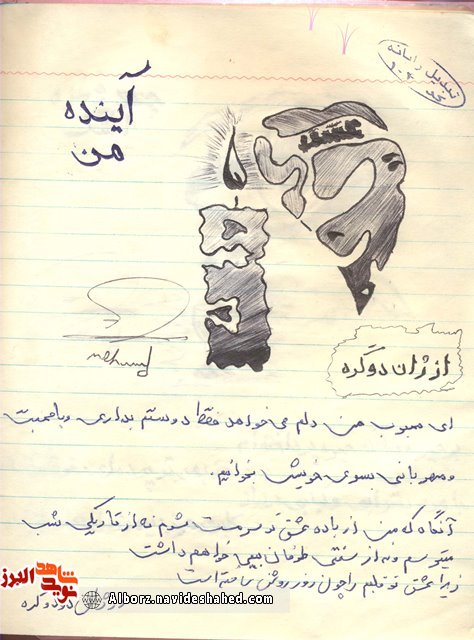 تبدیل رایانه
آینده
من
از ژان دوگره
ای محبوب من دلم می خواهد فقط دوستم بداری وبا محبت
ومهربانی بسوی خویش بخوانیم.
آنگاه که من از باده عشق تو سرمست شوم نه از تاریکی شب
میترسم ونه از سختی طوفان بیمی خواهم داشت
زیرا عشق تو قلبم را چون روز روشن ساخته است
دوگره
شاهد البرز
نوید
Alborz.navideshahed.com